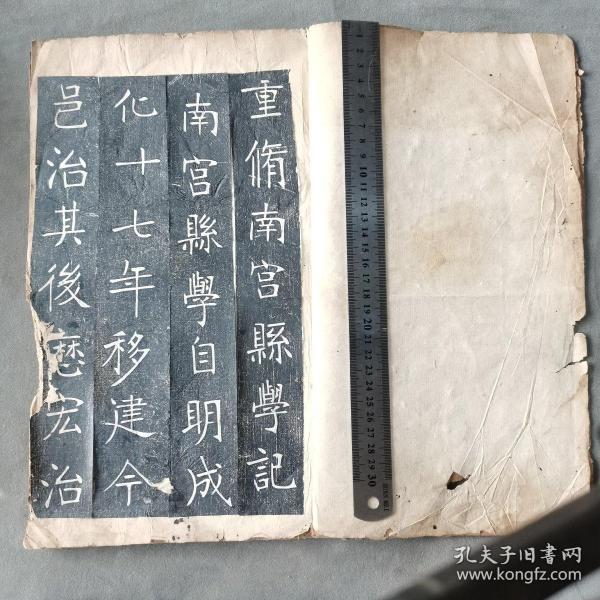 重脩南宫縣學記
南宫縣學自明成
化十七年移建今
邑治其後歷宏治
1 2 3 4 5 6 7 8 9 10 11 12 13 14 15 16 17 18 19 20 21 22 23 24 25 26 27 28 29 30
孔夫子旧书网
www.kongfz.com